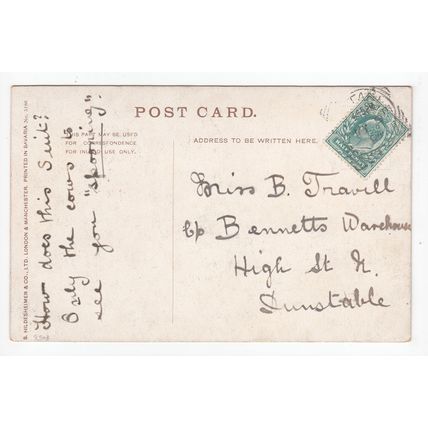 POST CARD.
THIS PART MAY BE USED
FOR CORRESPONDENCE
FOR INLAND USE ONLY.
ADDRESS TO BE WRITTEN HERE.
How does this Suit?
Only the cows to
see you "spooning".
Miss B. Travill
c/o Bennetts Warehouse
High St N.
Dunstable
B. HILDESHEIMER & CO., LTD. LONDON & MANCHESTER. PRINTED IN BAVARIA No.